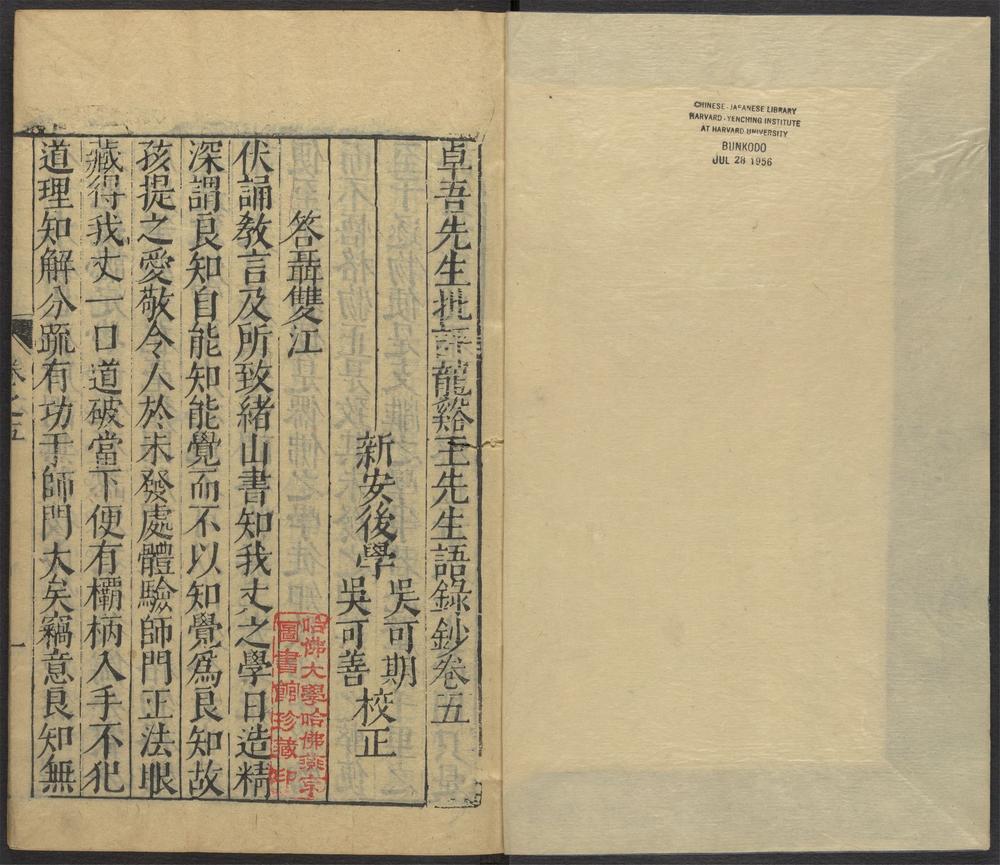 卓吾先生批評龍谿王先生語錄鈔卷五
新安後學
吳可期
吳可善
校正
答聶雙江
伏誦教言及所致緒山書知我丈之學日造精
深謂良知自能知能覺而不以知覺爲良知故
孩提之愛敬令人於未發處體驗師門正法眼
藏得我丈一口道破當下便有欛柄入手不犯
道理知解分疏有功于師門大矣竊意良知無
卷之五
一
哈佛大學哈佛燕京
圖書館珍藏印
CHINESE-JAPANESE LIBRARY
HARVARD-YENCHING INSTITUTE
AT HARVARD UNIVERSITY
BUNKODO
JUL 28 1956